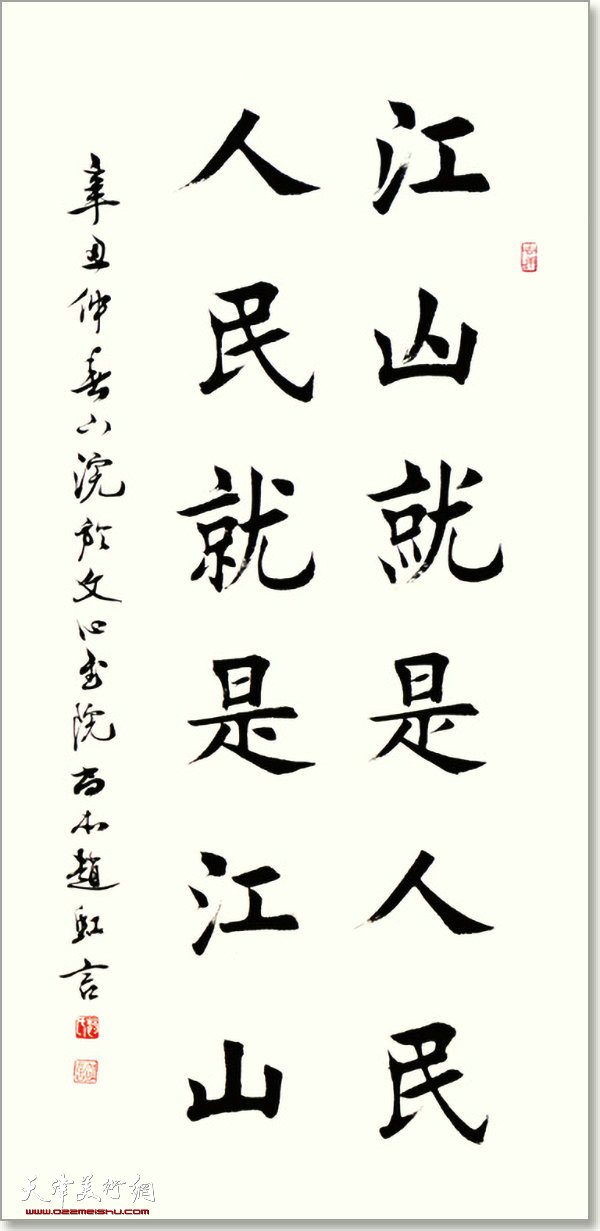 江山就是人民
人民就是江山
辛丑仲春下浣於文心書院尚 趙虹言
天津美術網
www.022meishu.com